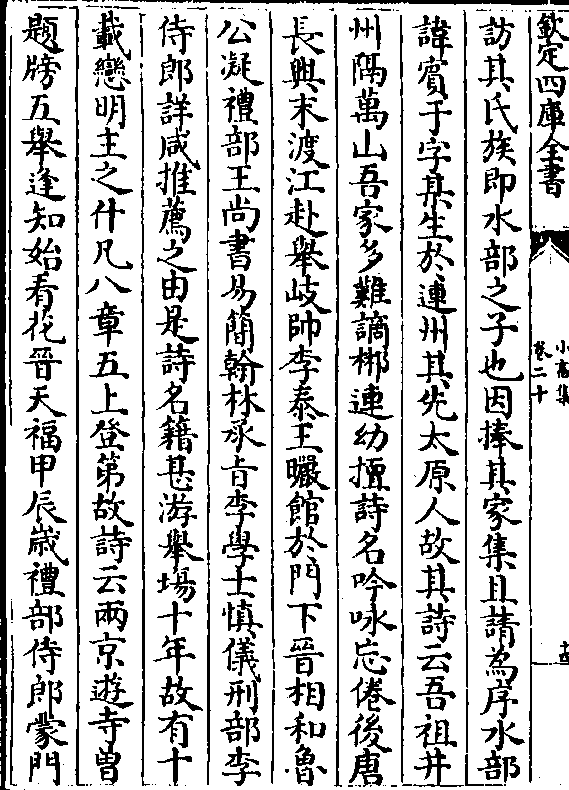 欽定四庫全書
小畜集
卷二十
訪其氏族即水部之子也因捧其家集且請為序水部
諱賓于字某生於連州其先太原人故其詩云吾祖并
州隔萬山吾家多難謫郴連幼擅詩名吟咏忘倦後唐
長興末渡江赴舉岐帥李秦王曮館於門下晉相和魯
公凝禮部王尚書易簡翰林承㫖李學士慎儀刑部李
侍郎詳咸推薦之由是詩名籍甚游舉場十年故有十
載戀明主之什凡八章五上登第故詩云兩京遊寺曽
題牓五舉逢知始看花晉天福甲辰嵗禮部侍郎蒙門